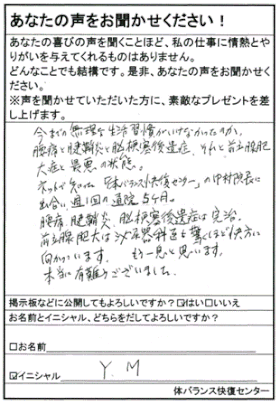 あなたの声をお聞かせください！
あなたの喜びの声を聞くことほど、私の仕事に情熱とや
りがいを与えてくれるものはありません。
どんなことでも結構です。是非、あなたの声をお聞かせく
ださい。
※声を聞かせていただいた方に、素敵なプレゼントを差
し上げます。
今までの無理な生活習慣がいけなかったのか、
腰痛と腱鞘炎と脳梗塞後遺症、それと前立腺肥
大症と最悪の状態。
ネットで知った「体バランス快復センター」の中村院長に
出会い、週1回の通院5ヶ月。
腰痛、腱鞘炎、脳梗塞後遺症は完治。
前立腺肥大は泌尿器科医も驚くほど快方に
向かっています。もう一息と思います。
本当に有難うございました。
掲示板などに公開してもよろしいですか？☑はい□いいえ
お名前とイニシャル、どちらをだしてよろしいですか？
□お名前
☑イニシャル Y.M
体バランス快復センター